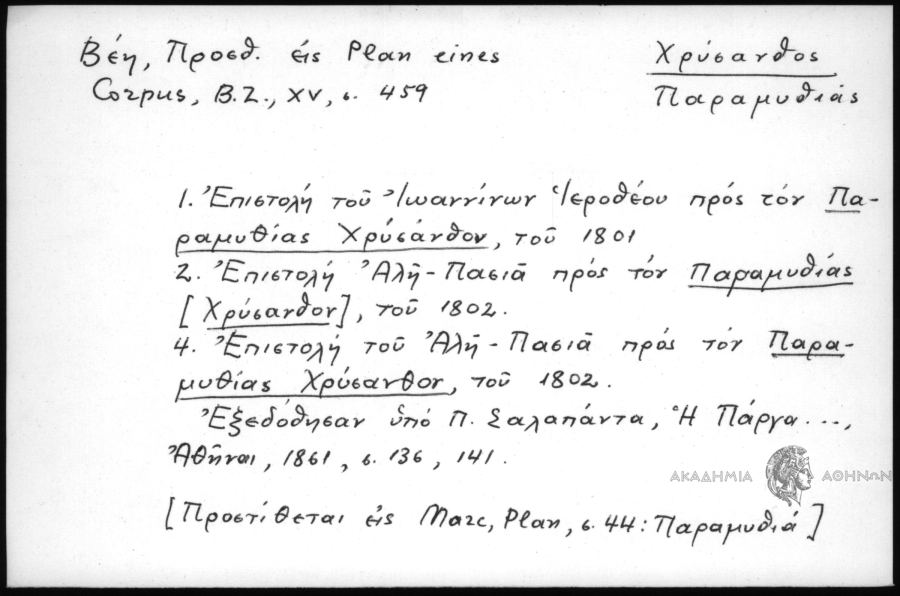 Βέη, Προσθ. εἰς Plan eines
Corpus, B.Z., XV, σ. 459
Χρύσανθος
Παραμυθιάς
1. Ἐπιστολή τοῦ Ἰωαννίνων Ἱεροθέου πρός τόν Πα-
ραμυθίας Χρύσάνθον, τοῦ 1801
2. Ἐπιστολή Ἀλῆ-Πασιᾶ πρός τόν Παραμυθίας
[Χρύσανθον], τοῦ 1802.
4. Ἐπιστολή τοῦ Ἀλῆ-Πασιᾶ πρός τόν Παρα-
μυθίας Χρύσανθον, τοῦ 1802.
Ἐξεδόθησαν ὑπό Π. Σαλαπάντα, Ἡ Πάργα...,
Ἀθῆναι, 1861, σ. 136, 141.
ΑΚΑΔΗΜΙΑ ΑΘΗΝΩΝ
[Προστίθεται εἰς Marc, Plan, σ. 44: Παραμυθιά]